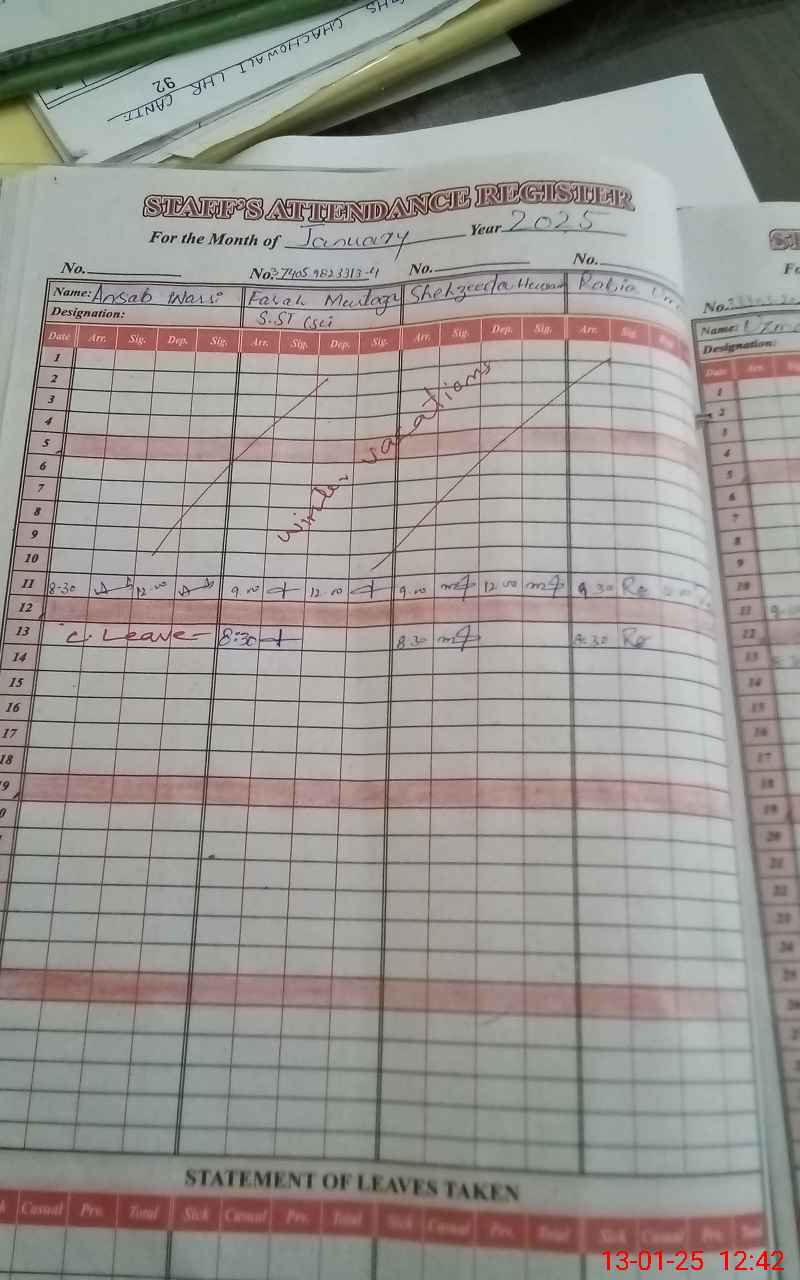 GHS CHACHOWALI LHR CANTT
92
STAFF'S ATTENDANCE REGISTER
For the Month of January Year 2025
No. No. 37405 9823313-4 No. No.
Name: Ansab Farah Shehzeeda Rabia
Designation: S.ST (sci
Date Arr. Sig. Dep. Sig. Arr. Sig. Dep. Sig. Arr. Sig. Dep. Sig. Arr. Sig.
1
2
3
4
5
6
7
8
9
10
winter vacations
11 8-30 12-00 9.00 12.00 9.00 12.00 9 30
12
13 C. Leave 8:30 8 30 8:30
14
15
16
17
18
9
0
STATEMENT OF LEAVES TAKEN
Casual Prv. Total Sick Casual Prv. Total Sick Casual Prv. Total Sick Casual Prv.
ST
Fo
No.
Name: Uzm
Designation:
Date Arr.
1
2
3
4
5
6
7
8
9
10
11
12
13
14
15
16
17
18
19
20
21
22
23
24
25
26
13-01-25 12:42